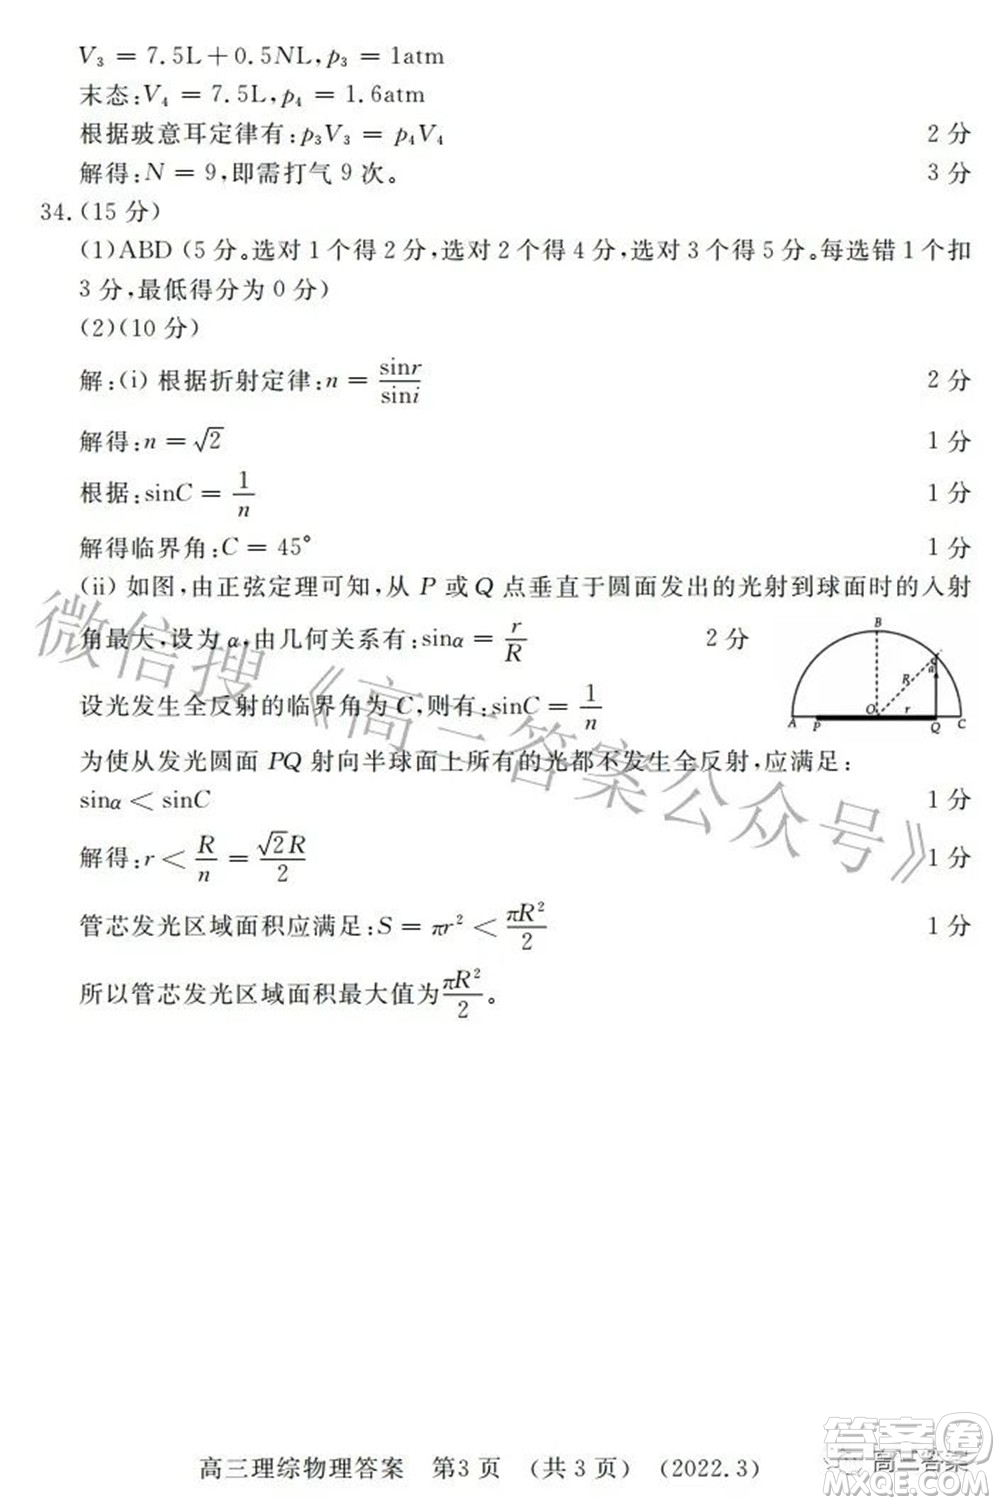 V₃ = 7.5L+0.5NL, p₃ = 1atm
末态:V₄ = 7.5L, p₄ = 1.6atm
根据玻意耳定律有:p₃V₃ = p₄V₄ 2 分
解得:N = 9,即需打气 9 次。 3 分
34.(15 分)
(1)ABD (5 分。选对 1 个得 2 分,选对 2 个得 4 分,选对 3 个得 5 分。每选错 1 个扣
3 分,最低得分为 0 分)
(2)(10 分)
解:(i) 根据折射定律:n = sinr/sini 2 分
解得:n = √2 1 分
根据:sinC = 1/n 1 分
解得临界角:C = 45° 1 分
(ii) 如图,由正弦定理可知,从 P 或 Q 点垂直于圆面发出的光射到球面时的入射
角最大,设为 α,由几何关系有:sinα = r/R 2 分
B
R
α
O
r
A
P
Q
C
设光发生全反射的临界角为 C,则有:sinC = 1/n
为使从发光圆面 PQ 射向半球面上所有的光都不发生全反射,应满足:
sinα < sinC 1 分
解得:r < R/n = √2R/2 1 分
管芯发光区域面积应满足:S = πr² < πR²/2 1 分
所以管芯发光区域面积最大值为 πR²/2 。
微信搜《高三答案公众号》
高三理综物理答案 第3页 (共3页) (2022.3)
答案圈
高三答案
MXQE.COM